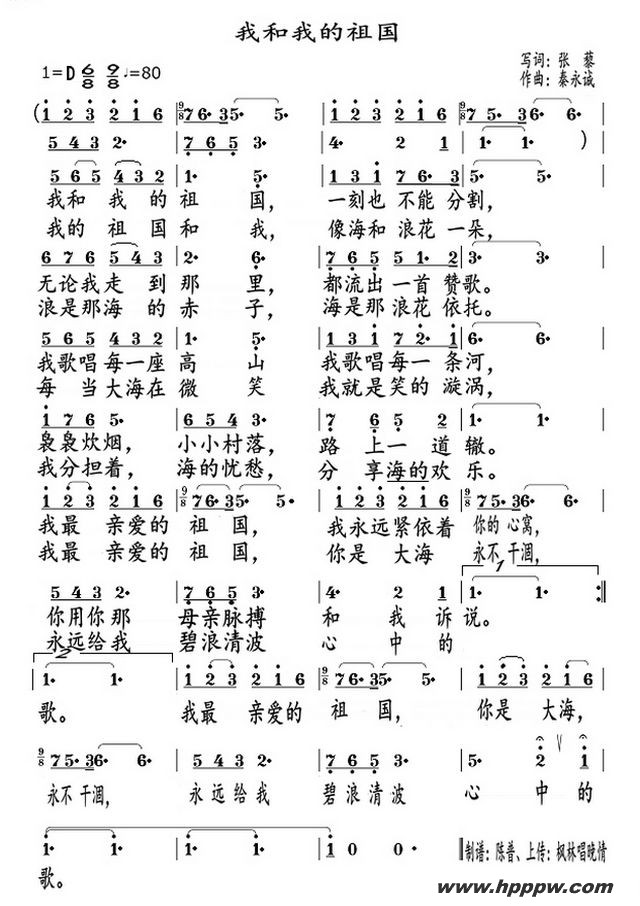 我和我的祖国
1=D 6/8 9/8 ♩.=80
写词：张 藜
作曲：秦永诚
(1 2 3 2 1 6 | 9/8 7 6· 3 5· 5· | 1 2 3 2 1 6 | 9/8 7 5· 3 6· 6·
5 4 3 2· | 7 6 5 3· | 4· 2 1 | 1· 1· )
5 6 5 4 3 2 | 1· 5· | 1 3 1 7 6· 3 | 5· 5·
我和 我 的 祖 国， 一刻也 不能 分割，
我的 祖 国和 我， 像海和 浪花 一朵，
6 7 6 5 4 3 | 2· 6· | 7 6 5 5 1· 2 | 3· 3·
无论我走 到 那 里， 都流出一首 赞歌。
浪是那海 的 赤 子， 海是那浪花 依托。
5 6 5 4 3 2 | 1· 5· | 1 3 1 7 2· 1 | 6· 6·
我歌唱每一座 高 山 我歌唱每一 条河，
每 当大海在 微 笑 我就是笑的 漩涡，
1 7 6 5· | 6 5 4 3· | 7 6 5 2 | 1· 1·
袅袅炊烟， 小小村落， 路 上一 道辙。
我分担着， 海的忧愁， 分 享海的 欢乐。
1 2 3 2 1 6 | 9/8 7 6· 3 5· 5· | 1 2 3 2 1 6 | 9/8 7 5· 3 6· 6·
我最 亲爱的 祖 国， 我永远紧依着 你的 心窝，
我最 亲爱的 祖 国， 你是 大海 永不 干涸，
5 4 3 2· | 7 6 5 3· | 4· 2 1 | 1 1· 1· :|
你用你那 母亲脉搏 和 我 诉 说。
永远给我 碧浪清波 心 中的
2 1· 1· | 1 2 3 2 1 6 | 9/8 7 6· 3 5· 5· | 1 2 3 2 1 6
歌。 我最 亲爱的 祖 国， 你是 大海，
9/8 7 5· 3 6· 6· | 5 4 3 2· | 7 6 5 3· | 5· 2 V 1
永不 干涸， 永 远给我 碧浪清波 心 中的
1· 1· | 1· 1· | 1 0 0· 0· ‖ 制谱：陈普、上传：枫林唱晚情
歌。
www.hpppw.com